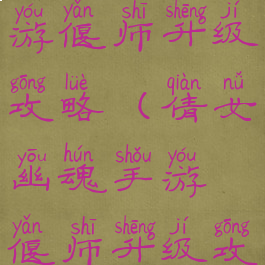 yóu yǎn shī shēng jí
游偃师升级
gōng lüè qiàn nǚ
攻略（倩女
yōu hún shǒu yóu
幽魂手游
yǎn shī shēng jí gōng
偃师升级攻